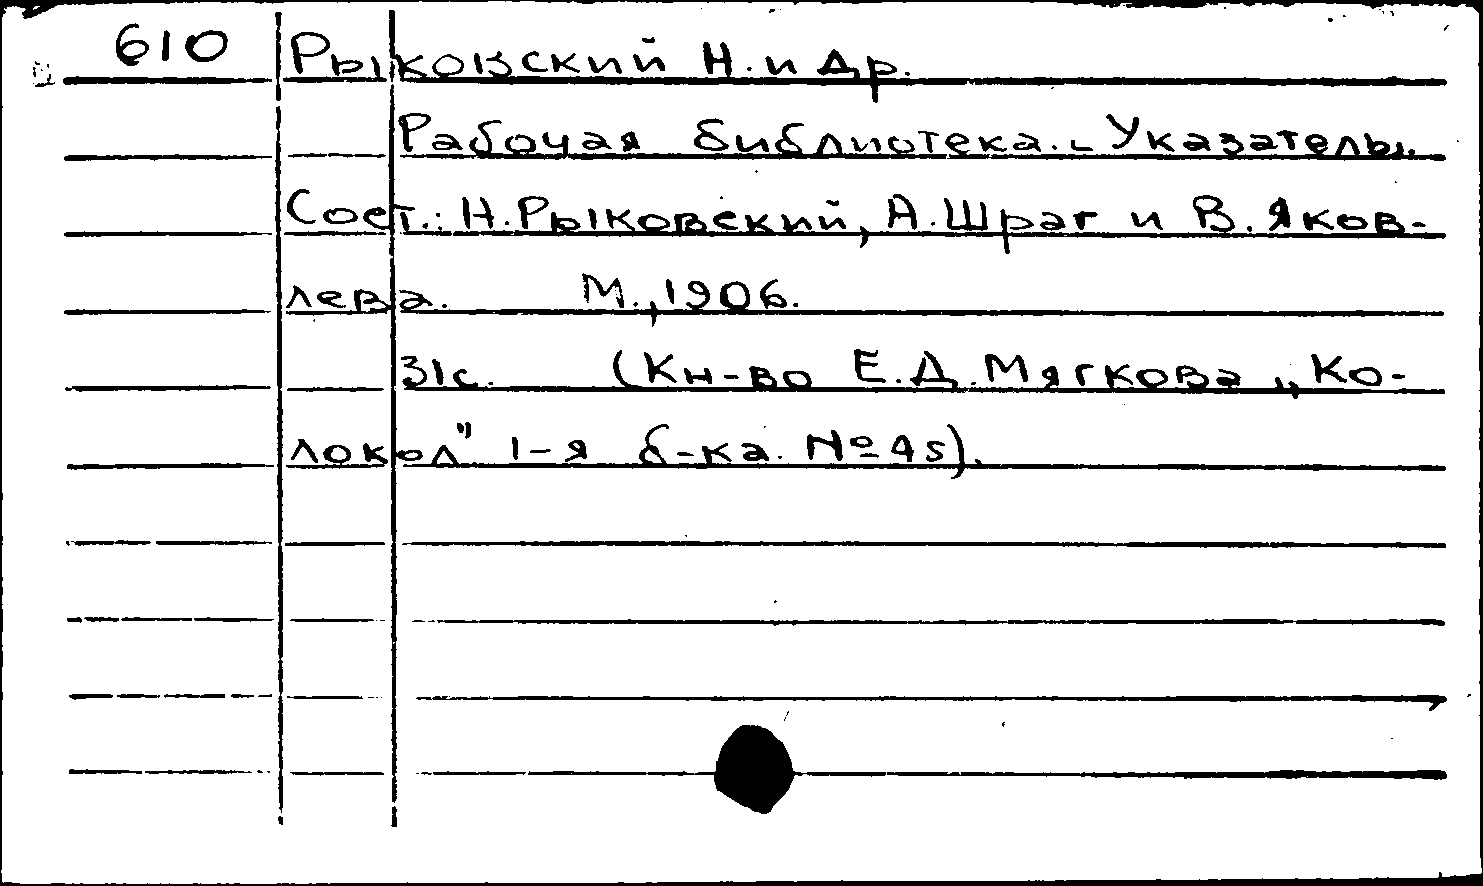 610 Рыковский Н. и др.
Рабочая библиотека. - Указатель.
Сост.: Н. Рыковский, А. Шраг и В. Яков-
лева. М., 1906.
31с. (Кн-во Е. Д. Мягкова „Ко-
локол" 1-я б-ка. № 45).